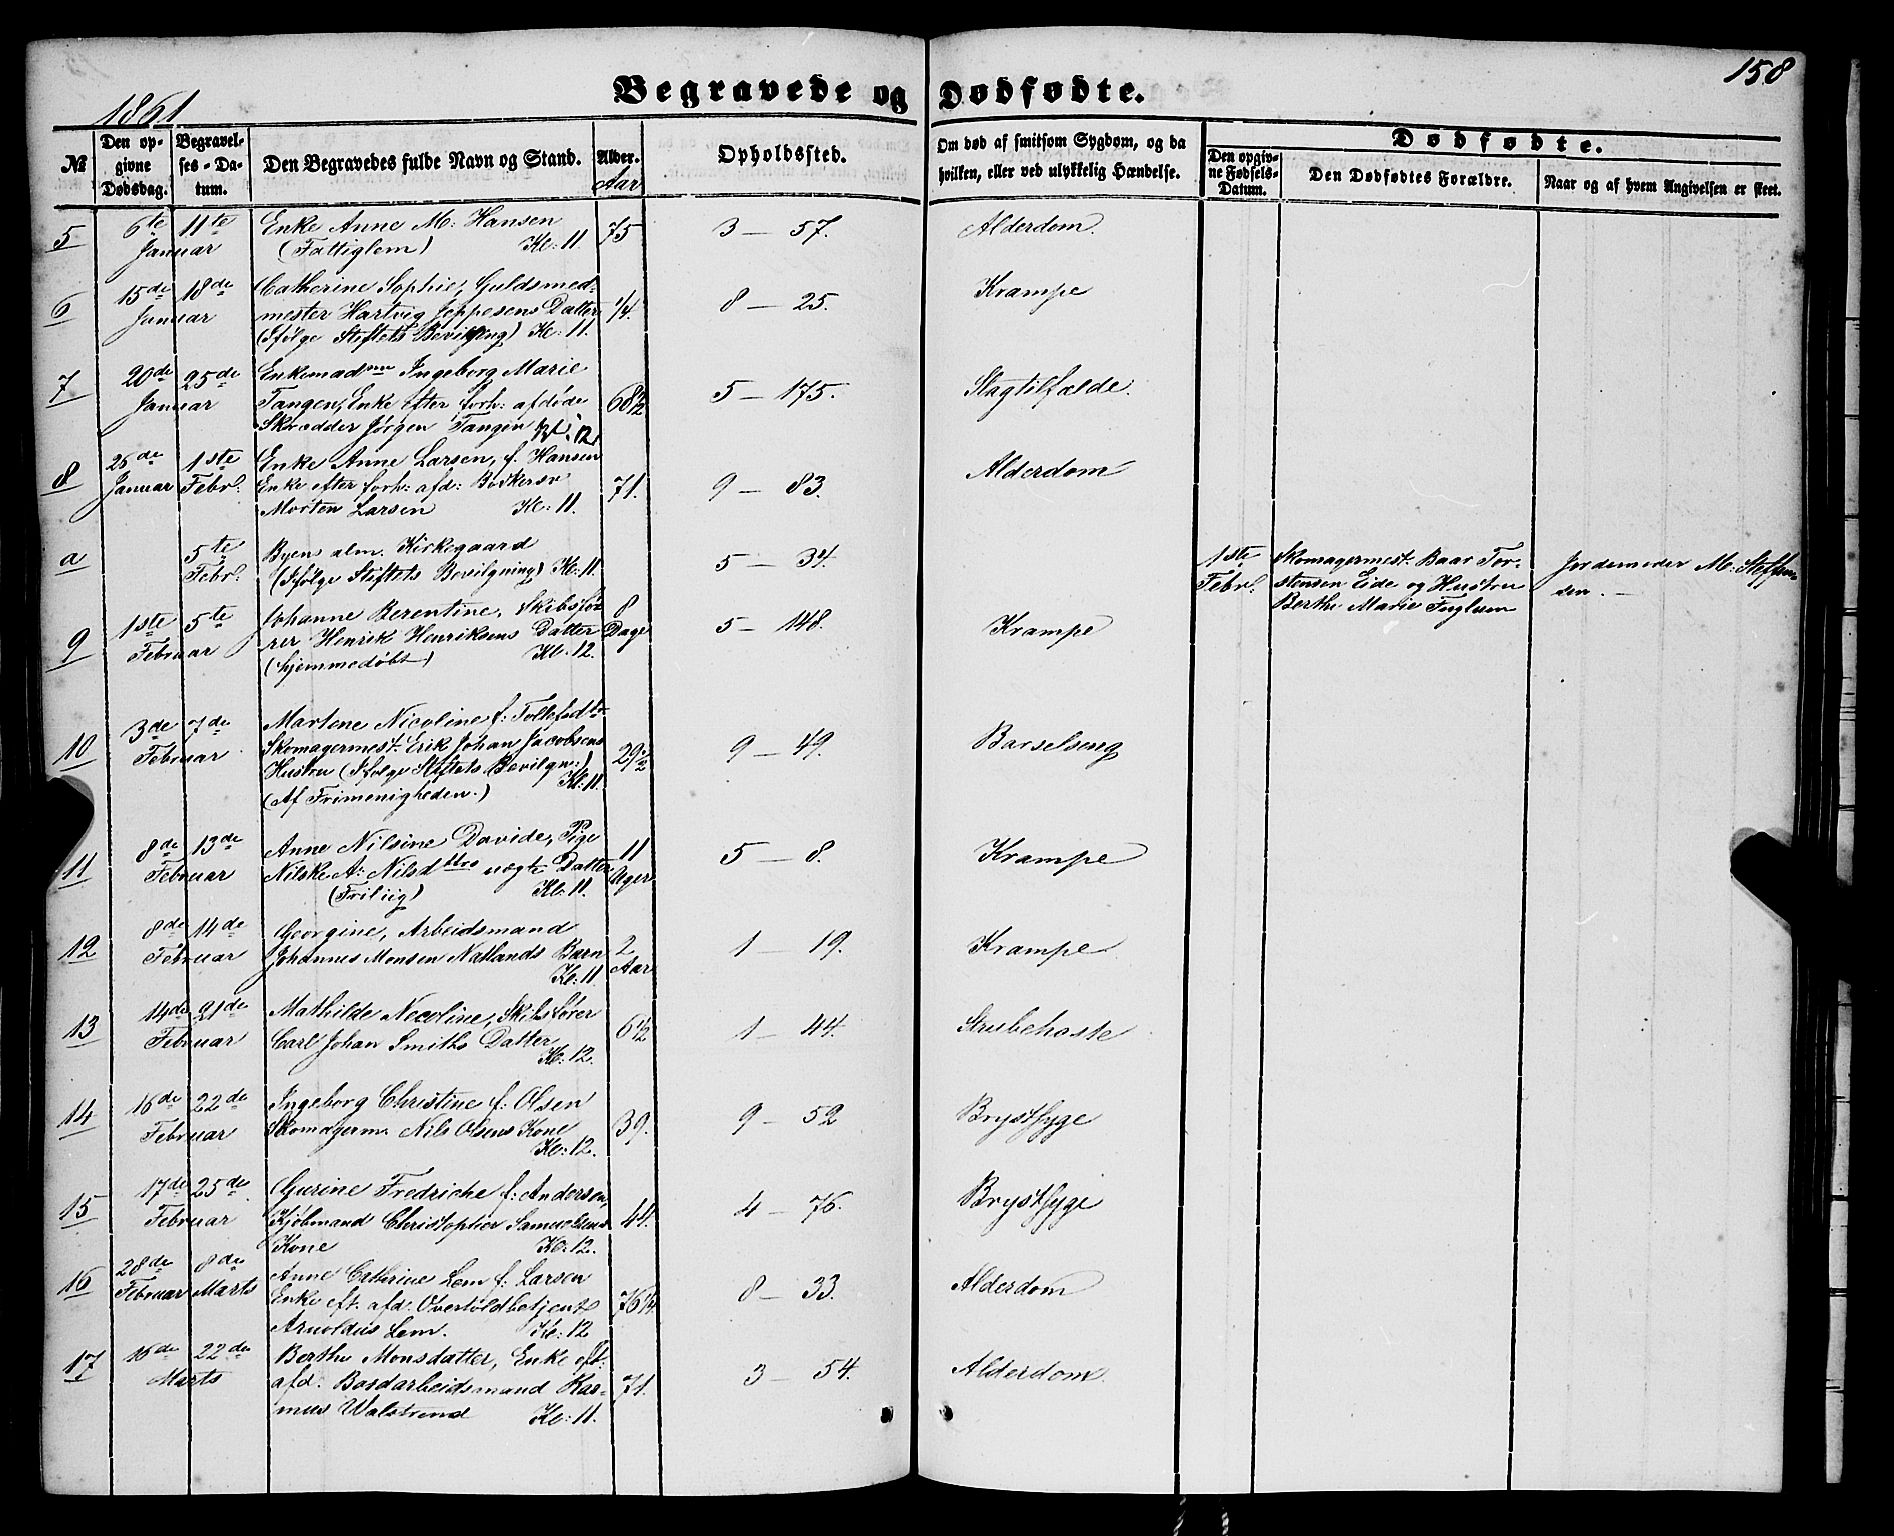 158
Begravede og Dødfødte.
1861
№
Den opgivne Dødsdag.
Begravelses-Datum.
Den Begravedes fulde Navn og Stand.
Alder.
Aar
Opholdssted.
Om død af smitsom Sygdom, og da hvilken, eller ved ulykkelig Hændelse.
Dødfødte.
Den opgivne Fødsels-Datum.
Den Dødfødtes Forældre.
Naar og af hvem Angivelsen er skeet.
5 6te 11te Enke Anne M: Hansen 75 3 — 57. Alderdom.
Januar (Fattiglem) Kl: 11
6 15de 18de Catherine Sophie, Guldsmed- 1/4. 8 — 25. Krampe
Januar mester Hartvig Jeppesens Datter
(Ifølge Stiftets Bevilgning) Kl: 11.
7 20de 25de Enkemadme Ingeborg Marie 68 1/2 5 — 175. Slagtilfælde.
Januar Tangen, Enke efter forh: afdøde
Skrædder Jørgen Tangen Kl: 12
8 26de 1ste Enke Anne Larsen, f. Hansen 71. 9 — 83. Alderdom
Januar Febr. Enke efter forh: afd: Bødkersv
Morten Larsen Kl: 11.
a 5te Byens alm. Kirkegaard 5 — 34. 1ste Skomagermest. Baar Tor- Jordemoder M: Steffen-
Febr. (Ifølge Stiftets Bevilgning) Kl: 11. Febr. stensen Eide og Hustru sen.
Berthe Marie Fuglum
9 1ste 5te Johanne Berentine, Skibsfø- 8 5 — 148. Krampe
Februar rer Henrik Henriksens Datter Dage
(hjemmedøbt) Kl. 12.
10 3de 7de Martene Nicoline f: Tollefsdtr. 29 1/2 9 — 49. Barselseng
Februar Skomagermest. Erik Johan Jacobsens
Hustru (Ifølge Stiftets Bevilgn:)
(Af Frimenigheden.) Kl: 11.
11 8de 13de Anne Nilsine Davide, Pige 11 5 — 8. Krampe
Februar Nilske A: Nilsdttrs uægte Datter Uger
(Friliig) Kl: 11.
12 8de 14de Georgine, Arbeidsmand 2 1 — 19. Krampe
Februar Johannes Monsen Natlands Barn Aar
Kl: 11
13 14de 21de Mathilde Necoline, Skibsfører 6 1/2 1 — 44. Strubehoste
Februar Carl Johan Smiths Datter
Kl: 12.
14 16de 22de Ingeborg Christine f: Olsen 39. 9 — 52 Brystsyge
Februar Skomagerm. Nils Olsens Kone
Kl: 12.
15 17de 25de Gurine Fredriche f: Andersen, 44. 4 — 76. Brystsyge
Februar Kjøbmand Christopher Samuelsens
Kone Kl: 12.
16 28de 8de Anne Catherine Lem f: Larsen 76 1/4. 8 — 33. Alderdom
Februar Marts Enke eft. afd. Overtoldbetjent
Arnoldus Lem. Kl: 12
17 16de 22de Berthe Monsdatter, Enke eft: 71. 3 — 54. Alderdom.
Marts afd. Bordarbeidsmand Ras-
mus Walstrand Kl: 11.